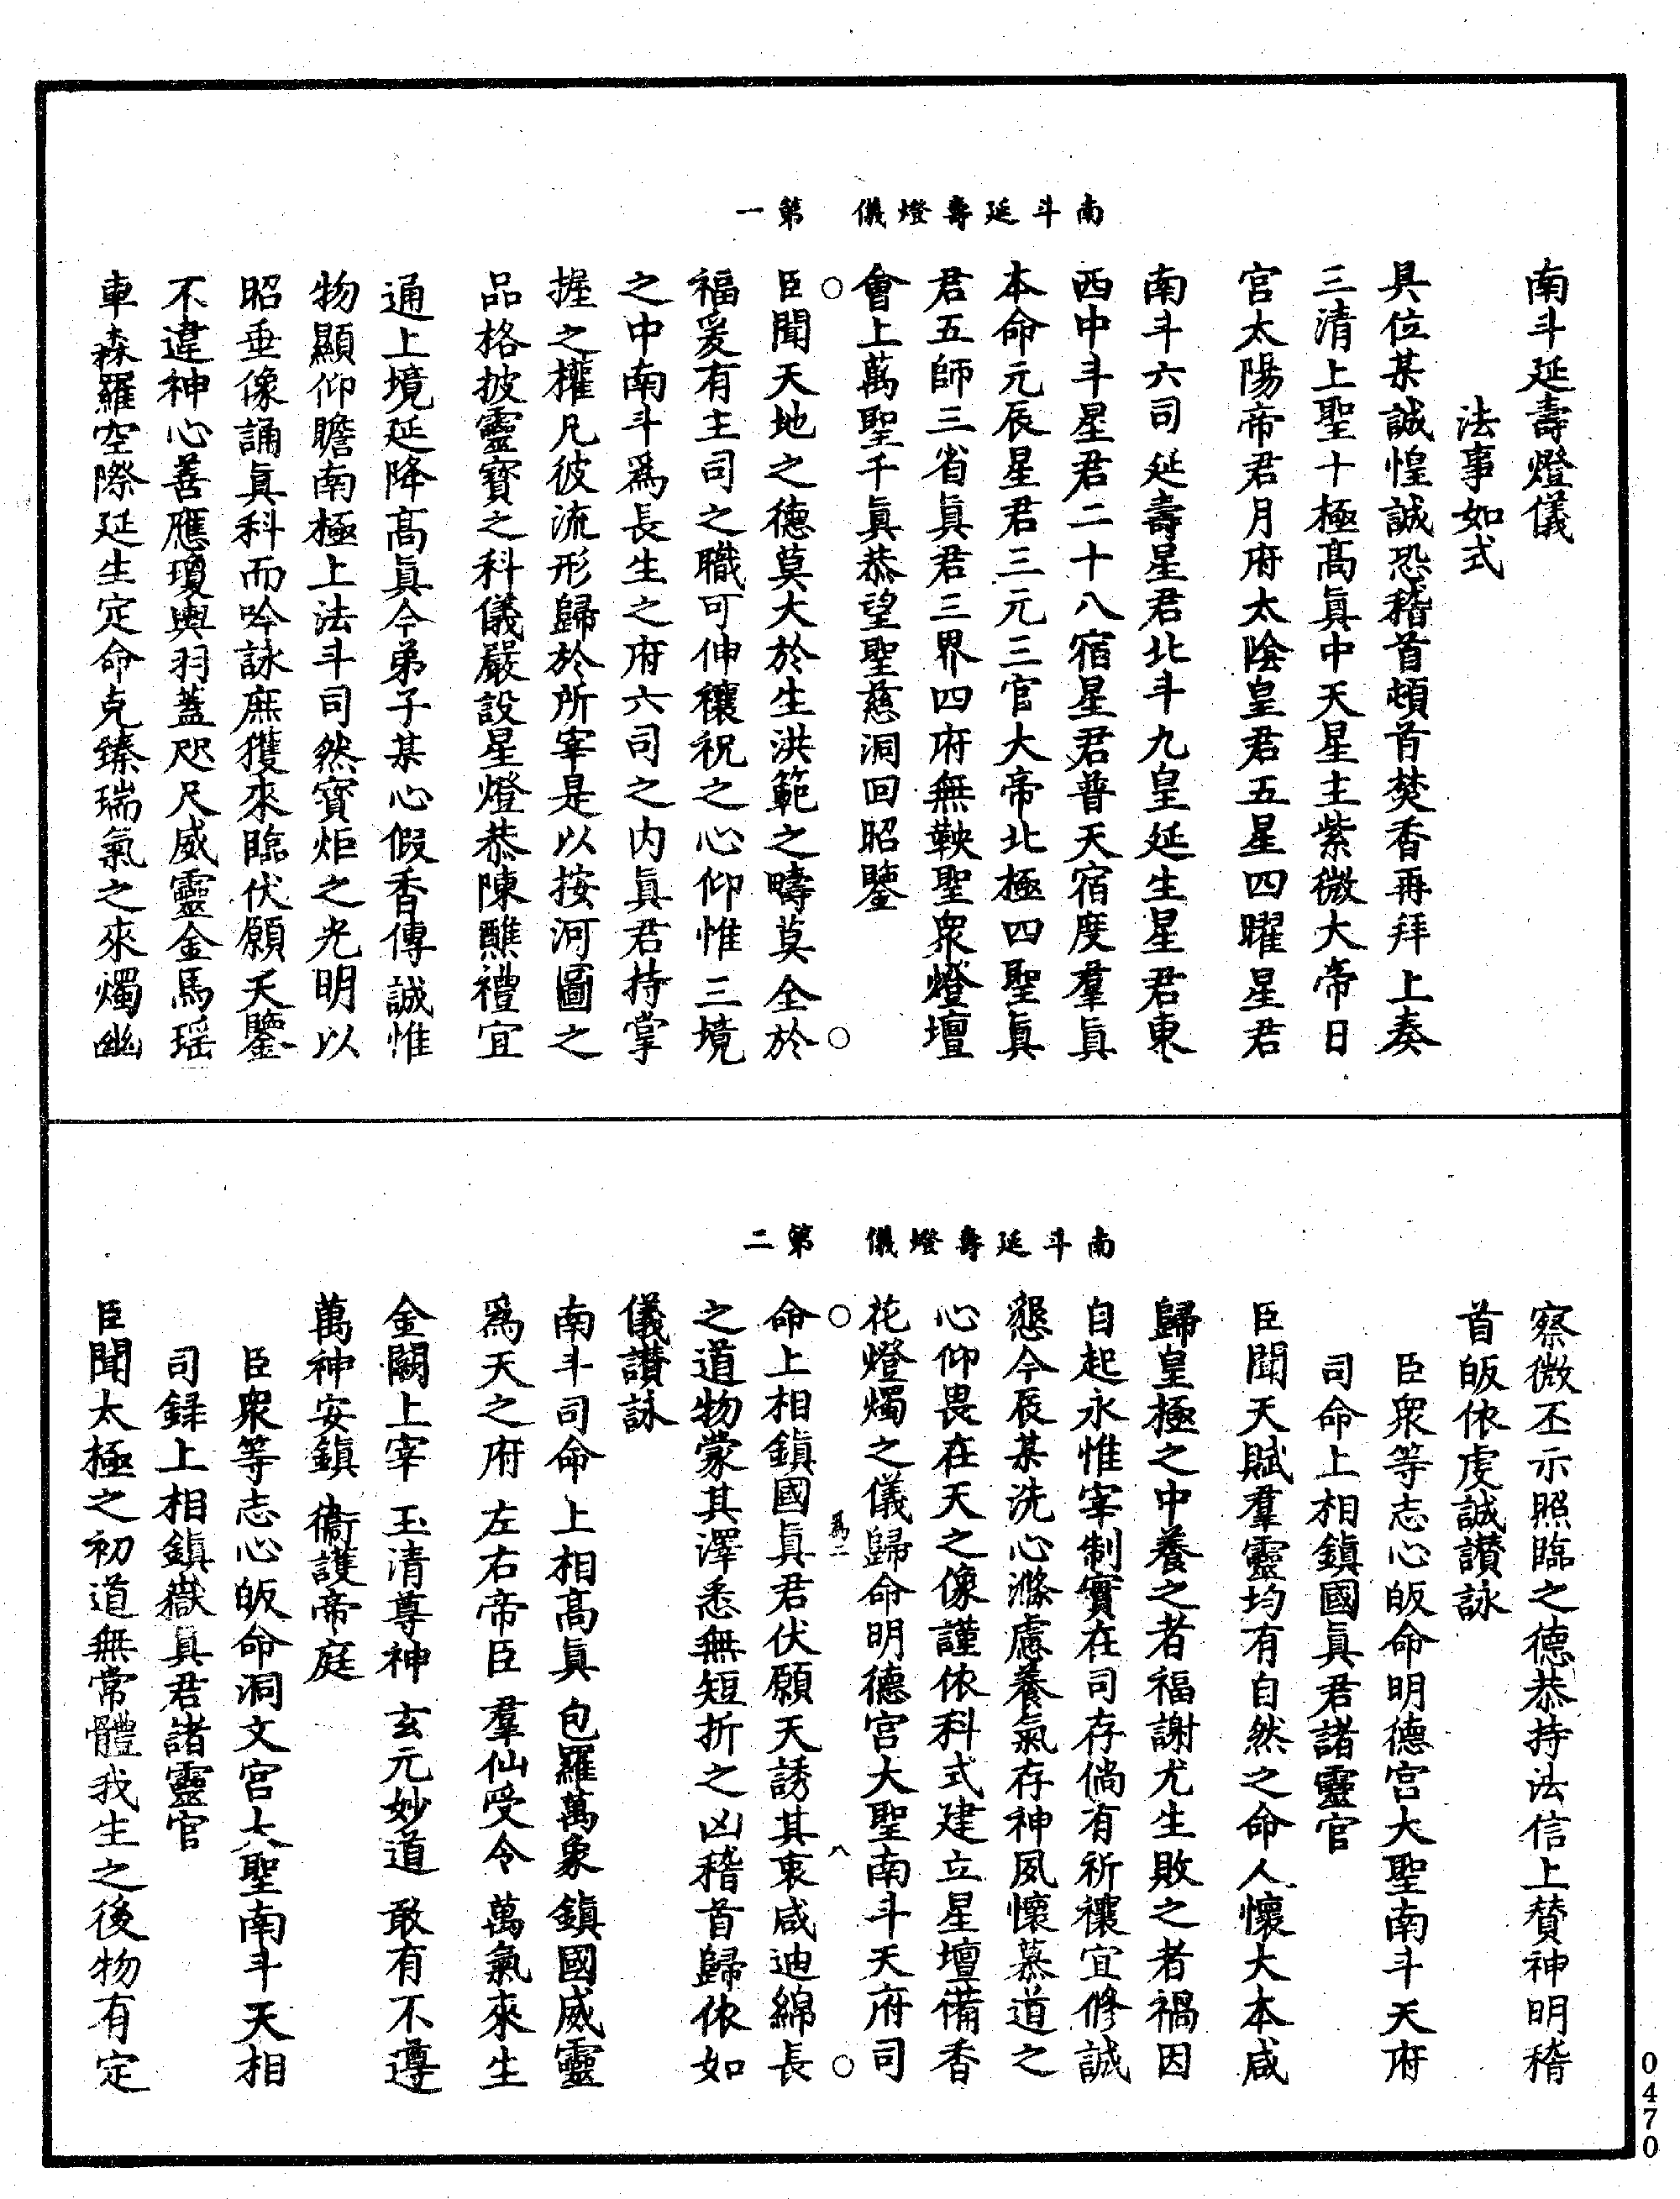 南斗延壽燈儀　第一
南斗延壽燈儀
法事如式
具位某誠惶誠恐稽首頓首焚香再拜上奏
三清上聖十極高眞中天星主紫微大帝日
宮太陽帝君月府太陰皇君五星四曜星君
南斗六司延壽星君北斗九皇延生星君東
西中斗星君二十八宿星君普天宿度羣眞
本命元辰星君三元三官大帝北極四聖眞
君五師三省眞君三界四府無鞅聖衆燈壇
會上萬聖千眞恭望聖慈洞回昭鑒
臣聞天地之德莫大於生洪範之疇莫全於
福爰有主司之職可伸禳祝之心仰惟三境
之中南斗爲長生之府六司之內眞君持掌
握之權凡彼流形歸於所宰是以按河圖之
品格披靈寶之科儀嚴設星燈恭陳醮禮宜
通上境延降高眞今弟子某心假香傳誠惟
物顯仰瞻南極上法斗司然寶炬之光明以
昭垂像誦眞科而吟詠庶獲來臨伏願天鑒
不違神心善應瓊輿羽蓋咫尺威靈金馬瑶
車森羅空際延生定命克臻瑞氣之來燭幽
南斗延壽燈儀　第二
察微丕示照臨之德恭持法信上賛神明稽
首皈依虔誠讃詠
臣衆等志心皈命明德宮大聖南斗天府
司命上相鎮國眞君諸靈官
臣聞天賦羣靈均有自然之命人懷大本咸
歸皇極之中養之者福謝尤生敗之者禍因
自起永惟宰制實在司存倘有祈禳宜修誠
懇今辰某洗心滌慮養氣存神夙懷慕道之
心仰畏在天之像謹依科式建立星壇備香
花燈燭之儀歸命明德宮大聖南斗天府司
爲二　八
命上相鎮國眞君伏願天誘其衷咸迪綿長
之道物蒙其澤悉無短折之凶稽首歸依如
儀讃詠
南斗司命　上相高眞　包羅萬象　鎮國威靈
爲天之府　左右帝臣　羣仙受令　萬氣來生
金闕上宰　玉清尊神　玄元妙道　敢有不遵
萬神安鎮　衞護帝庭
臣衆等志心皈命洞文宮大聖南斗天相
司録上相鎮嶽眞君諸靈官
臣聞太極之初道無常體我生之後物有定
0470